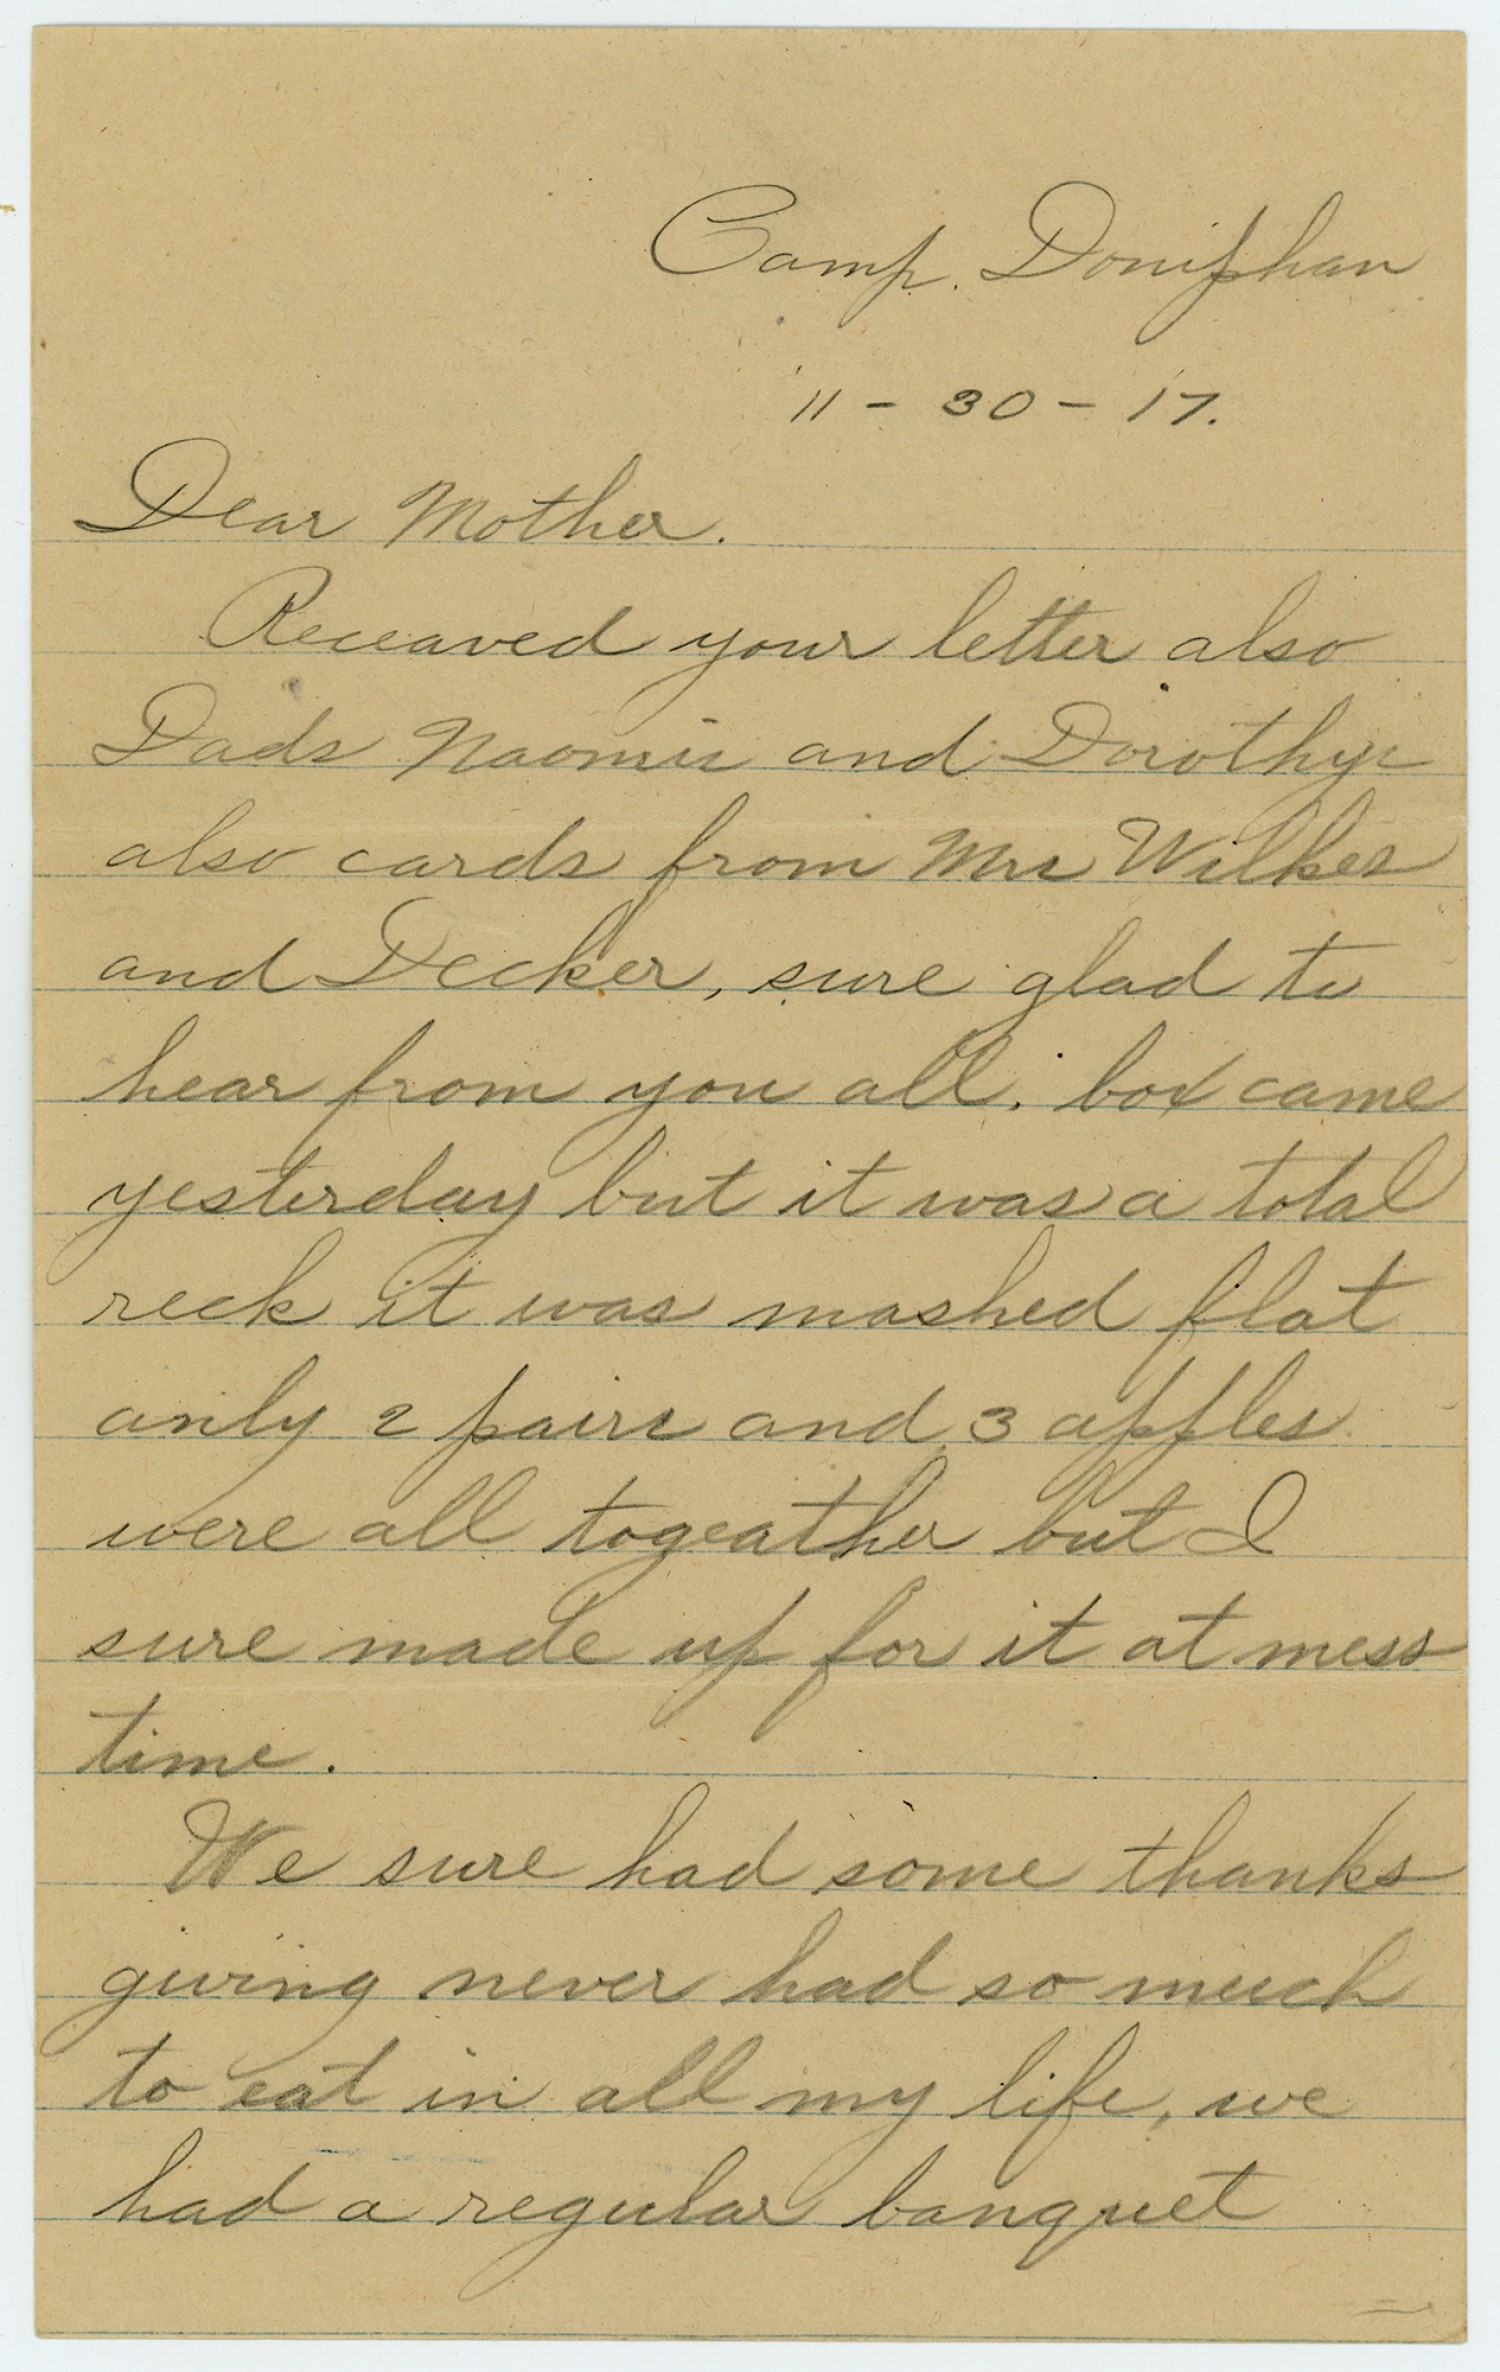 Camp. Doniphan
11 - 30 - 17.
Dear Mother.
Receaved your letter also
Dads Naomis and Dorothys
also cards from Mrs Wilkes
and Decker, sure glad to
hear from you all. box came
yesterday but it was a total
reck it was mashed flat
only 2 pairs and 3 apples
were all togeather but I
sure made up for it at mess
time.
We sure had some thanks
giving never had so much
to eat in all my life, we
had a regular banquet